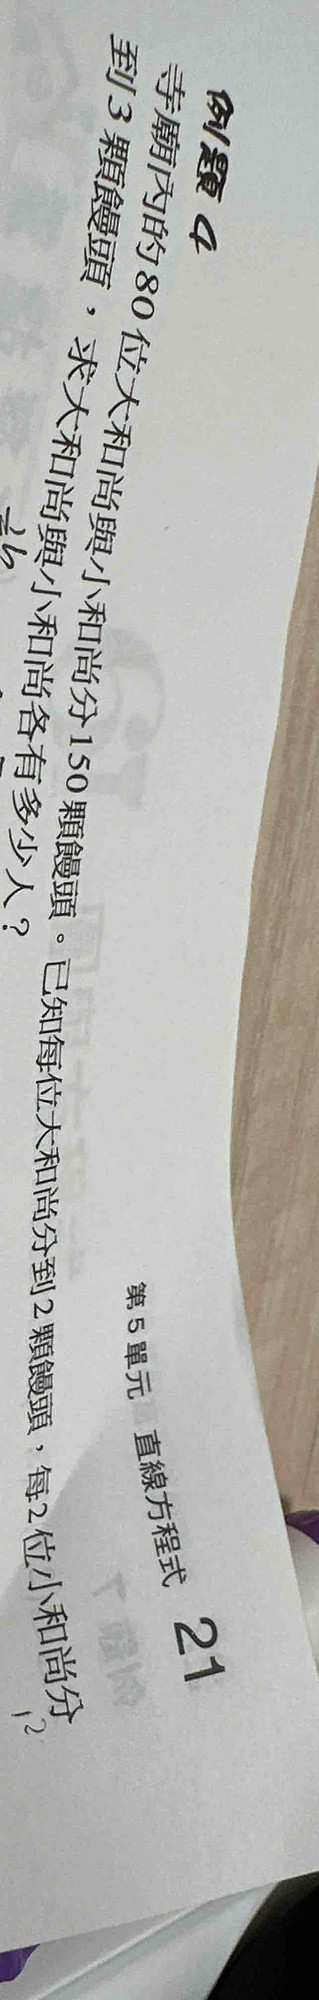 第5單元 直線方程式 21
例題 4
寺廟內的80位大和尚與小和尚分150顆饅頭。已知每位大和尚分到2顆饅頭，每2位小和尚分
到3顆饅頭，求大和尚與小和尚各有多少人？